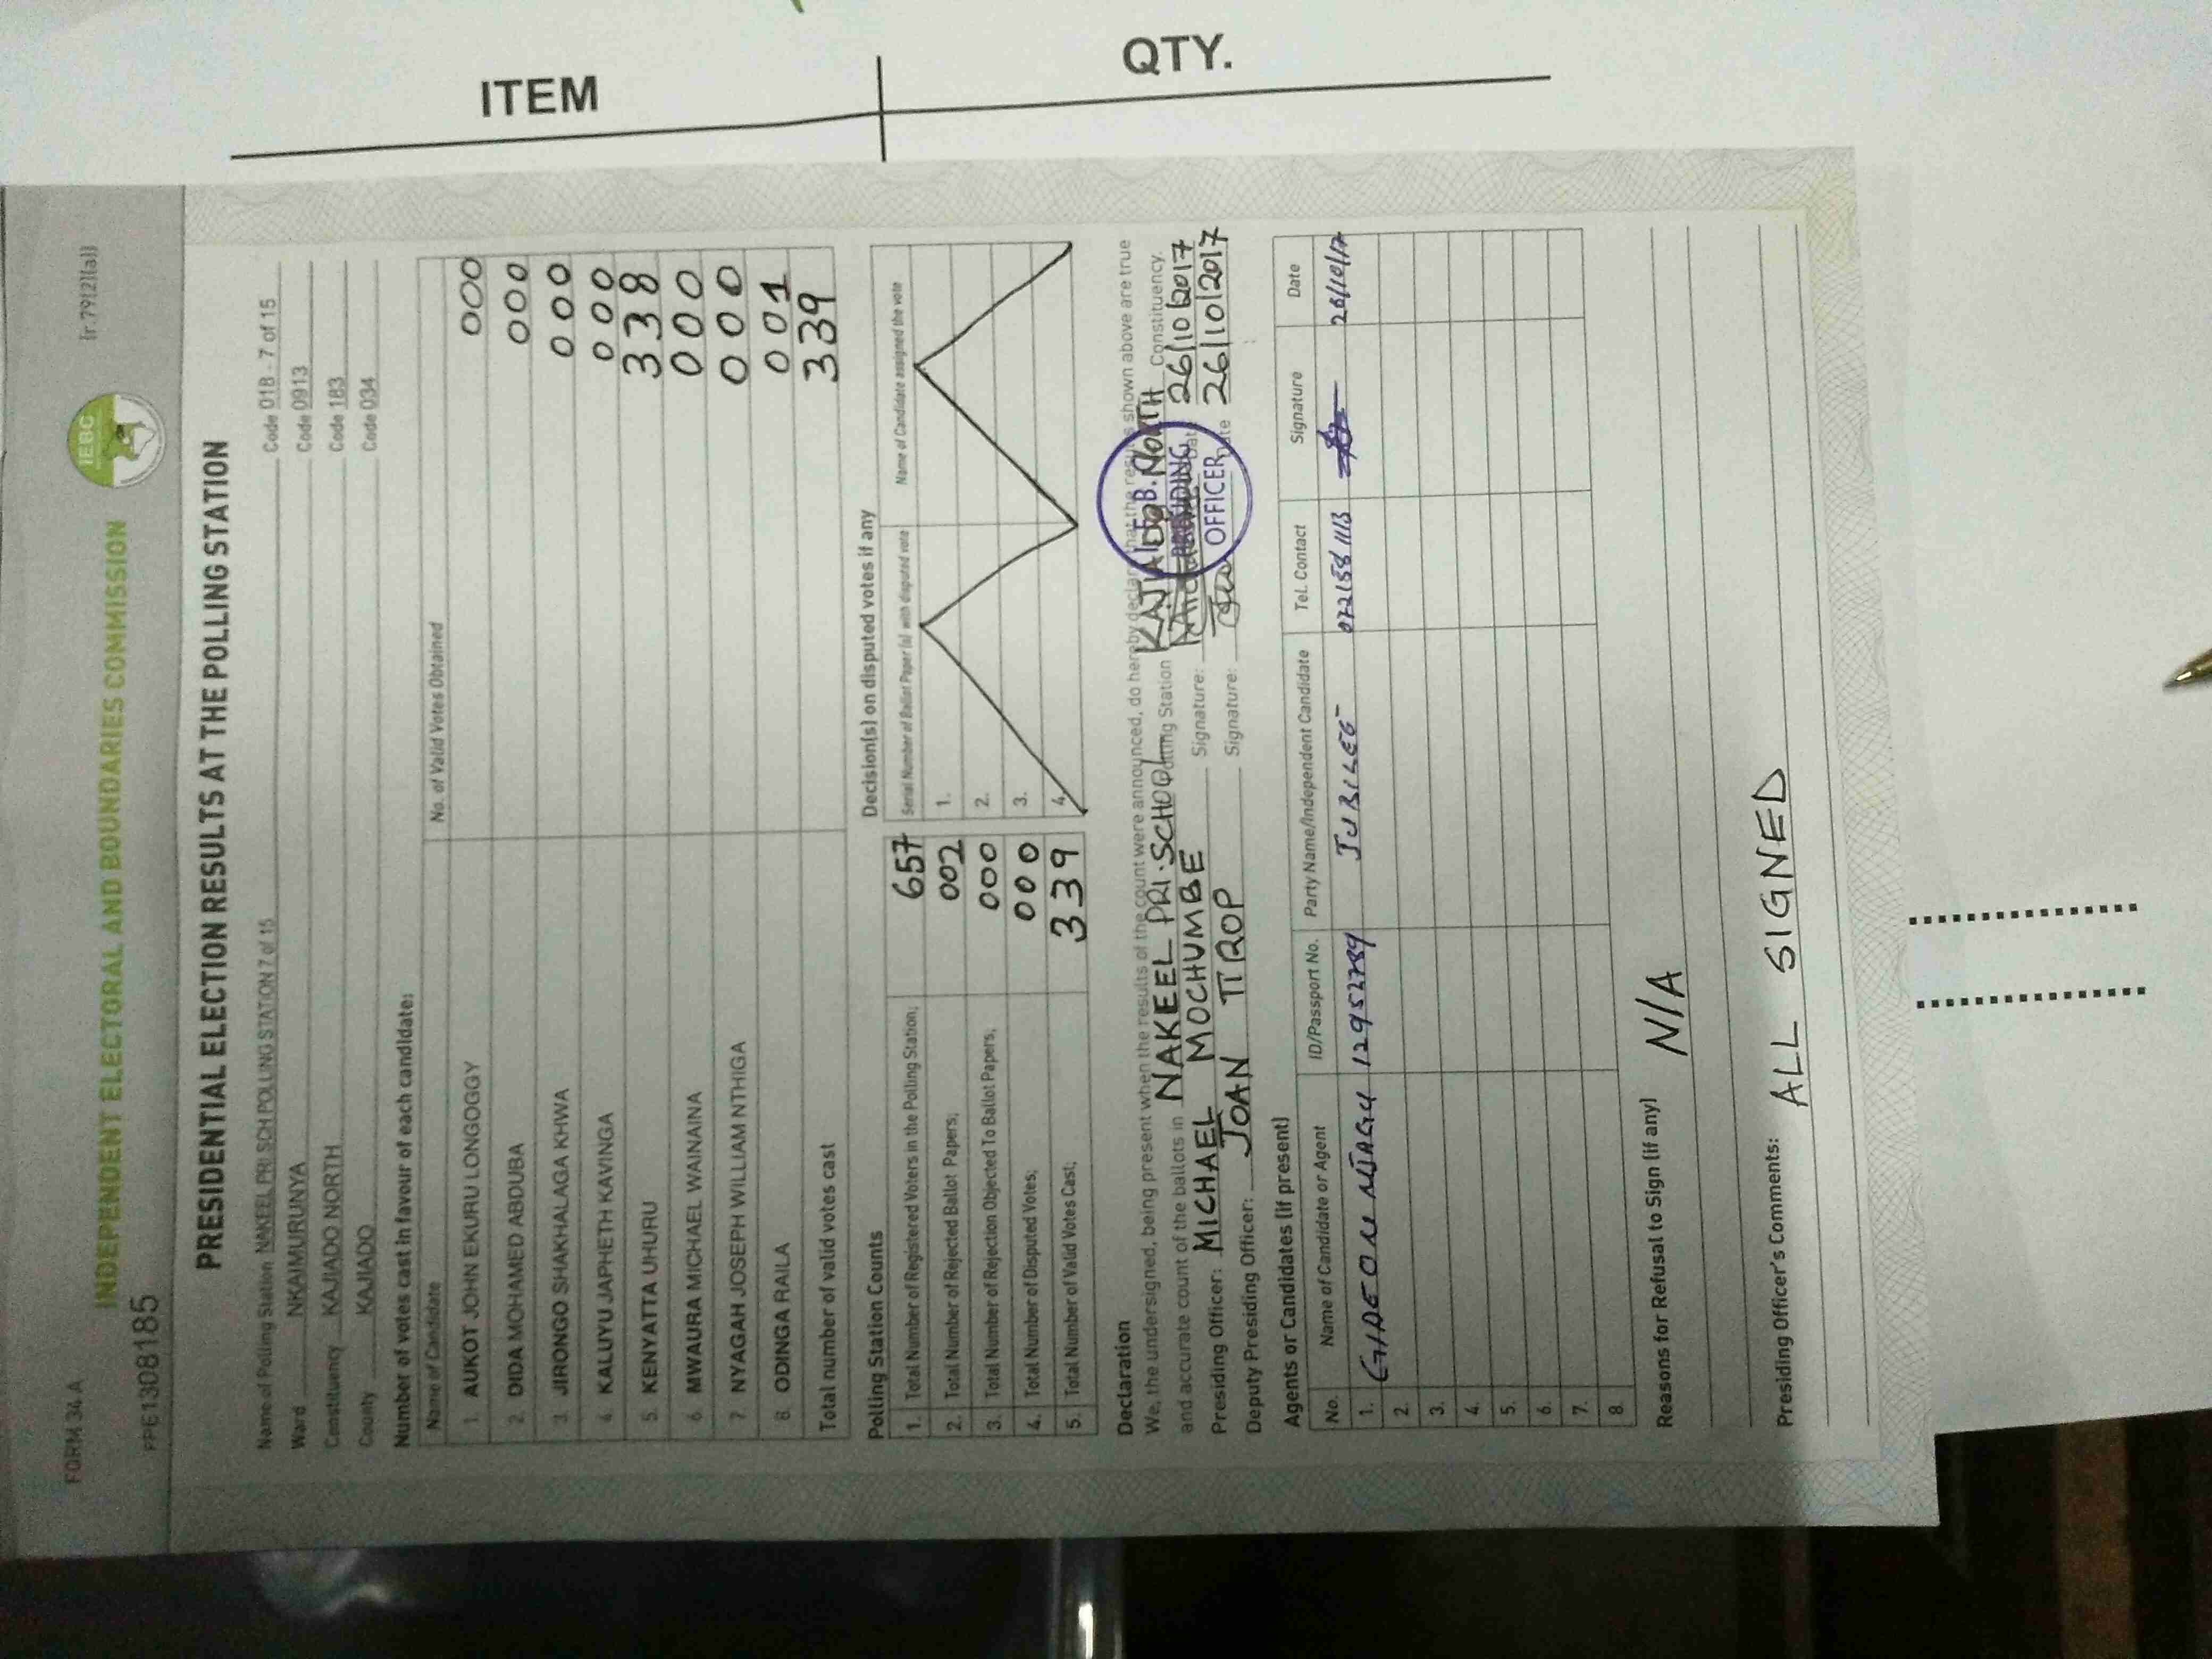 ITEM QTY.
FORM 34 A [r.79(2)(a)]
IEBC
INDEPENDENT ELECTORAL AND BOUNDARIES COMMISSION
PPE1308185
PRESIDENTIAL ELECTION RESULTS AT THE POLLING STATION
Name of Polling Station NAKEEL PRI SCH POLLING STATION 7 of 15 Code 018 - 7 of 15
Ward NKAIMURUNYA Code 0913
Constituency KAJIADO NORTH Code 183
County KAJIADO Code 034
Number of votes cast in favour of each candidate:
Name of Candidate No. of Valid Votes Obtained
1. AUKOT JOHN EKURU LONGOGGY 000
2. DIDA MOHAMED ABDUBA 000
3. JIRONGO SHAKHALAGA KHWA 000
4. KALUYU JAPHETH KAVINGA 000
5. KENYATTA UHURU 338
6. MWAURA MICHAEL WAINAINA 000
7. NYAGAH JOSEPH WILLIAM NTHIGA 000
8. ODINGA RAILA 001
Total number of valid votes cast 339
Polling Station Counts
1. Total Number of Registered Voters in the Polling Station; 657
2. Total Number of Rejected Ballot Papers; 002
3. Total Number of Rejection Objected To Ballot Papers; 000
4. Total Number of Disputed Votes; 000
5. Total Number of Valid Votes Cast; 339
Decision(s) on disputed votes if any
Serial Number of Ballot Paper (s) with disputed vote Name of Candidate assigned the vote
1.
2.
3.
4.
Declaration
We, the undersigned, being present when the results of the count were announced, do hereby declare that the results shown above are true
and accurate count of the ballots in NAKEEL PRI. SCHOOL Polling Station KAJIADO NORTH Constituency.
Presiding Officer: MICHAEL MOCHUMBE Signature: Date 26/10/2017
Deputy Presiding Officer: JOAN TIROP Signature: Date 26/10/2017
I.E.B.C
PRESIDING
OFFICER
Agents or Candidates (if present)
No. Name of Candidate or Agent ID/Passport No. Party Name/Independent Candidate Tel. Contact Signature Date
1. GIDEON NJAGU 12952789 JUBILEE 26/10/17
2.
3.
4.
5.
6.
7.
8.
Reasons for Refusal to Sign (if any) N/A
Presiding Officer's Comments: ALL SIGNED